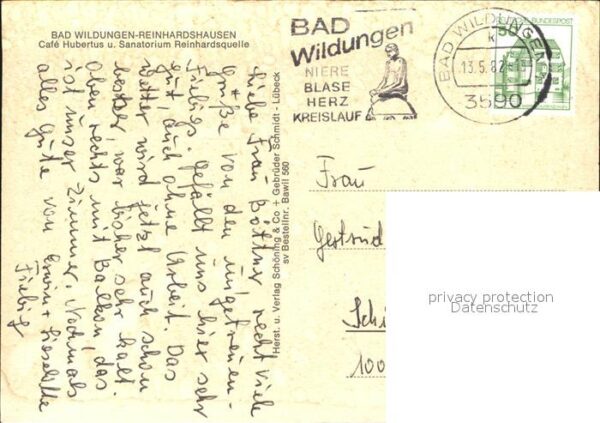 BAD WILDUNGEN-REINHARDSHAUSEN
Café Hubertus u. Sanatorium Reinhardsquelle
BAD
Wildungen
NIERE
BLASE
HERZ
KREISLAUF
BAD WILDUNGEN
k
13.5.82
3590
50
DEUTSCHE BUNDESPOST
Liebe Frau Böttner recht viele
Grüße von den ungetreuen
Fiebigs. Gefällt uns hier sehr
gut, auch ohne Arbeit. Das
Wetter wird jetzt auch schon
besser, war bisher sehr kalt.
Oben rechts mit Balkon, das
ist unser Zimmer. Nochmals
alles Gute von Erwin + Liselotte
Fiebig
Herst. u. Verlag Schöning & Co + Gebrüder Schmidt - Lübeck
sv Bestellnr. Bawil 560
Frau
Gertrud
100
privacy protection
Datenschutz